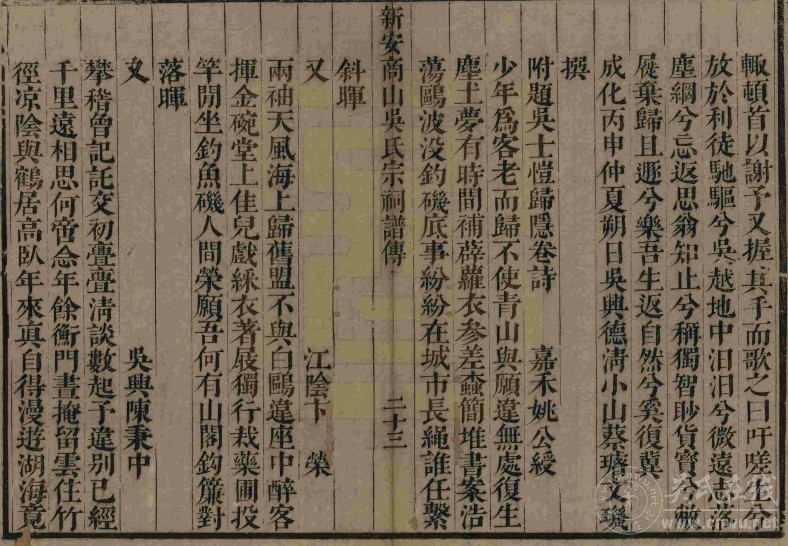 輒頓首以謝予又握其手而歌之曰吁嗟士兮
放於利徒馳驅兮吳越地中汨汨兮微遠志落
塵綱兮忘返思翁知止兮稱獨智眇貨寳兮敝
屣棄歸且遯兮樂吾生返自然兮奚復冀
成化丙申仲夏朔日吳興德淸小山蔡㻞文璣
撰
附題吳士愷歸隱卷詩 嘉禾姚公綬
少年爲客老而歸不使青山與願違無處復生
塵土夢有時間補薜蘿衣參差蠡簡堆書案浩
蕩鷗波没釣磯底事紛紛在城市長繩誰任繫
新安商山吳氏宗祠譜傳 二十三
斜暉
又 江陰卞榮
兩袖天風海上歸舊盟不與白鷗違座中醉客
揮金碗堂上佳兒戲綵衣著屐獨行栽藥圃投
竿閒坐釣魚磯人間榮願吾何有山閣鈎簾對
落暉
又 吳興陳秉中
攀稽曾記託交初亹亹淸談數起予違別已經
千里遠相思何啻念年餘衡門晝掩留雲住竹
徑凉陰與鶴居高臥年來真自得漫遊湖海竟